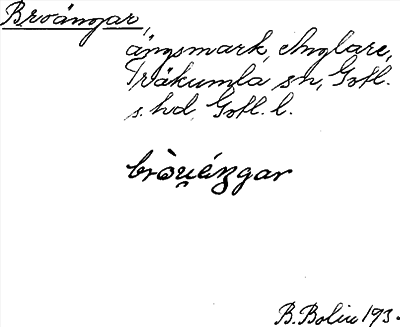 Broängar,
ängsmark, Anglare,
Träkumla sn, Gotl.
s. hd, Gotl. l.
B. Bolin 193